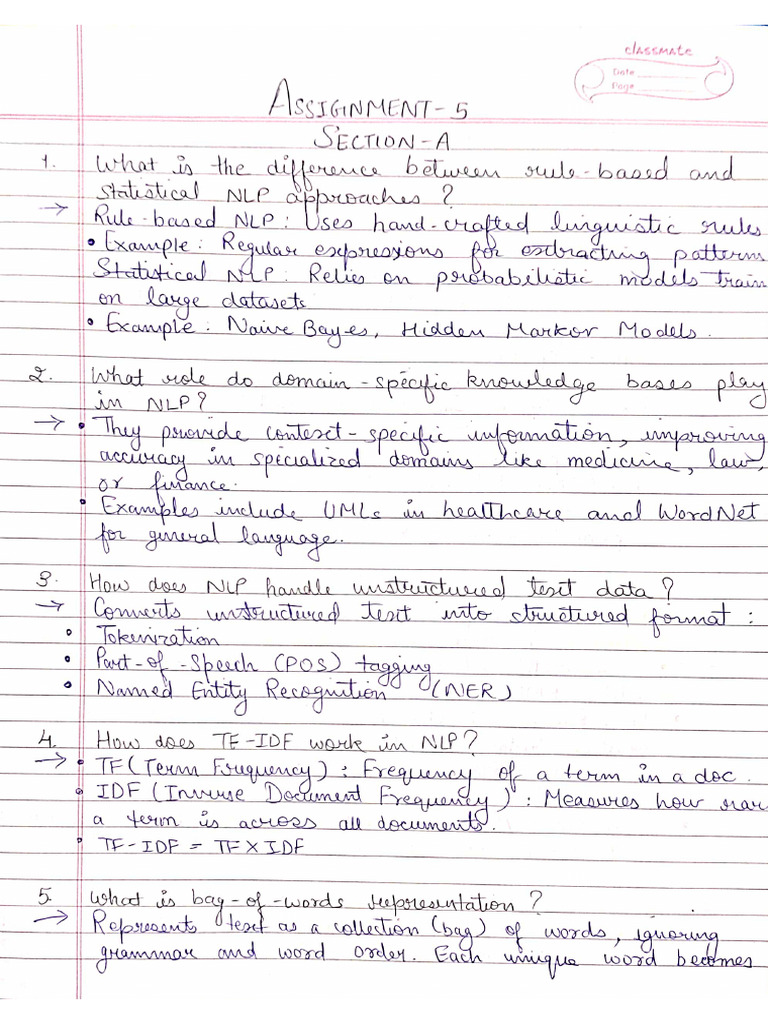 classmate
Date
Page
ASSIGNMENT-5
SECTION-A
1. What is the difference between rule-based and
statistical NLP approaches?
→ Rule-based NLP: Uses hand-crafted linguistic rules
• Example: Regular expressions for extracting pattern
Statistical NLP: Relies on probabilistic models train
on large datasets
• Example: Naive Bayes, Hidden Markov Models.
2. What role do domain-specific knowledge bases play
in NLP?
→ • They provide context-specific information, improving
accuracy in specialized domains like medicine, law,
or finance.
• Examples include UMLs in healthcare and WordNet
for general language.
3. How does NLP handle unstructured text data?
→ Converts unstructured text into structured format:
• Tokenization
• Part-of-Speech (POS) tagging
• Named Entity Recognition (NER)
4. How does TF-IDF work in NLP?
→ • TF (Term Frequency): Frequency of a term in a doc.
• IDF (Inverse Document Frequency): Measures how rar
a term is across all documents.
• TF-IDF = TF X IDF
5. What is bag-of-words representation?
→ Represents text as a collection (bag) of words, ignoring
grammar and word order. Each unique word becomes